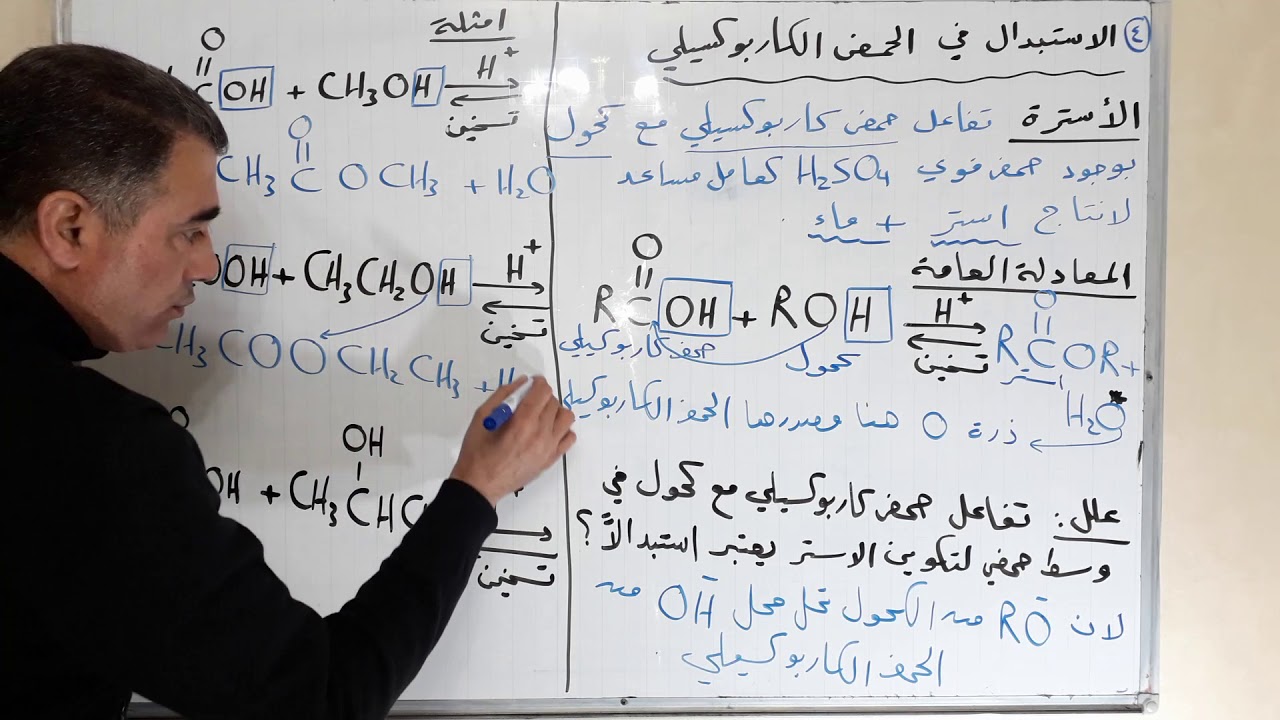 ٤ الاستبدال في الحمض الكاربوكسيلي
الأسترة تفاعل حمض كاربوكسيلي مع كحول
بوجود حمض قوي H₂SO₄ كعامل مساعد
لانتاج استر + ماء
المعادلة العامة
O O
R C OH + R O H H⁺ R C OR +
حمض كاربوكسيلي كحول تسخين استر
H₂O
ذرة O هنا مصدرها الحمض الكاربوكسيلي
علل: تفاعل حمض كاربوكسيلي مع كحول في
وسط حمضي لتكوين الاستر يعتبر استبدالاً؟
لان RO⁻ من الكحول تحل محل OH⁻ من
الحمض الكاربوكسيلي
امثلة
O
C OH + CH₃OH H⁺
تسخين
O
CH₃ C O CH₃ + H₂O
OH + CH₃CH₂OH H⁺
تسخين
H₃COOCH₂CH₃ + H
OH
OH + CH₃CHC
تسخين